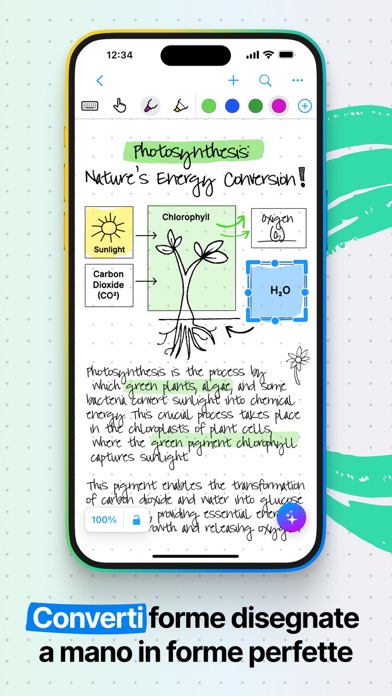 12:34
100%
Photosynthesis:
Nature's Energy Conversion!
Sunlight
Chlorophyll
Oxigen
(O₂)
Carbon
Dioxide
(CO²)
H₂O
Photosynthesis is the process by
which green plants, algae, and some
bacteria convert sunlight into chemical
energy. This crucial process takes place
in the chloroplasts of plant cells,
where the green pigment chlorophyll
captures sunlight.
This pigment enables the transformation
of carbon dioxide and water into glucose
providing essential
and releasing
Converti forme disegnate
a mano in forme perfette